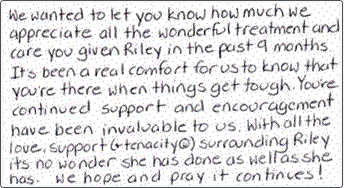 We wanted to let you know how much we
appreciate all the wonderful treatment and
care you given Riley in the past 9 months
It's been a real comfort for us to know that
you're there when things get tough. You're
continued support and encouragement
have been invaluable to us. With all the
love, support (+tenacity☺) surrounding Riley
its no wonder she has done as well as she
has. We hope and pray it continues!